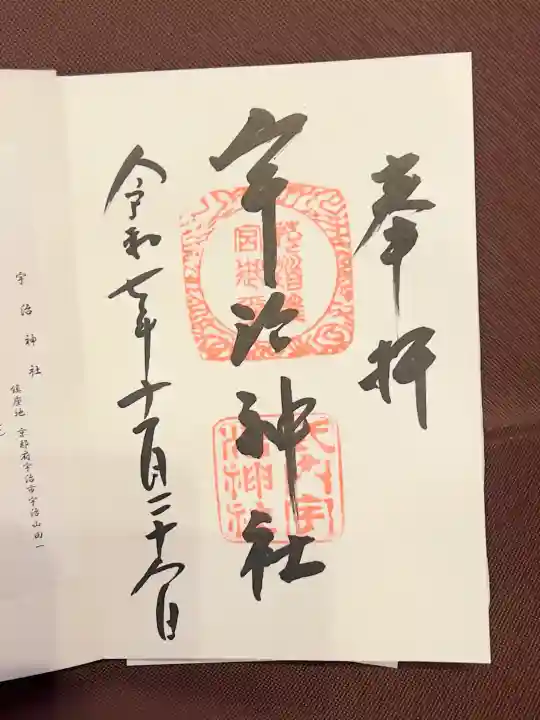 奉拝
宇治神社
令和七年十一月二十八日
宇治神社
鎮座地 京都府宇治市宇治山田一